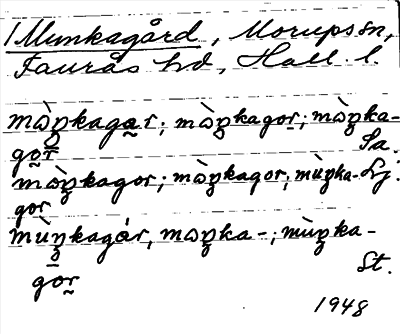 Munkagård, Morups sn,
Faurås hd, Hall. l.
mὼŋkagar; mὼŋkagor; mὼŋka-
gor Sa.
mὼŋkagor; mὼŋkagor; mùŋka- Lj.
gor
mùŋkagár, mωŋka-; mùŋka-
gor St.
1948